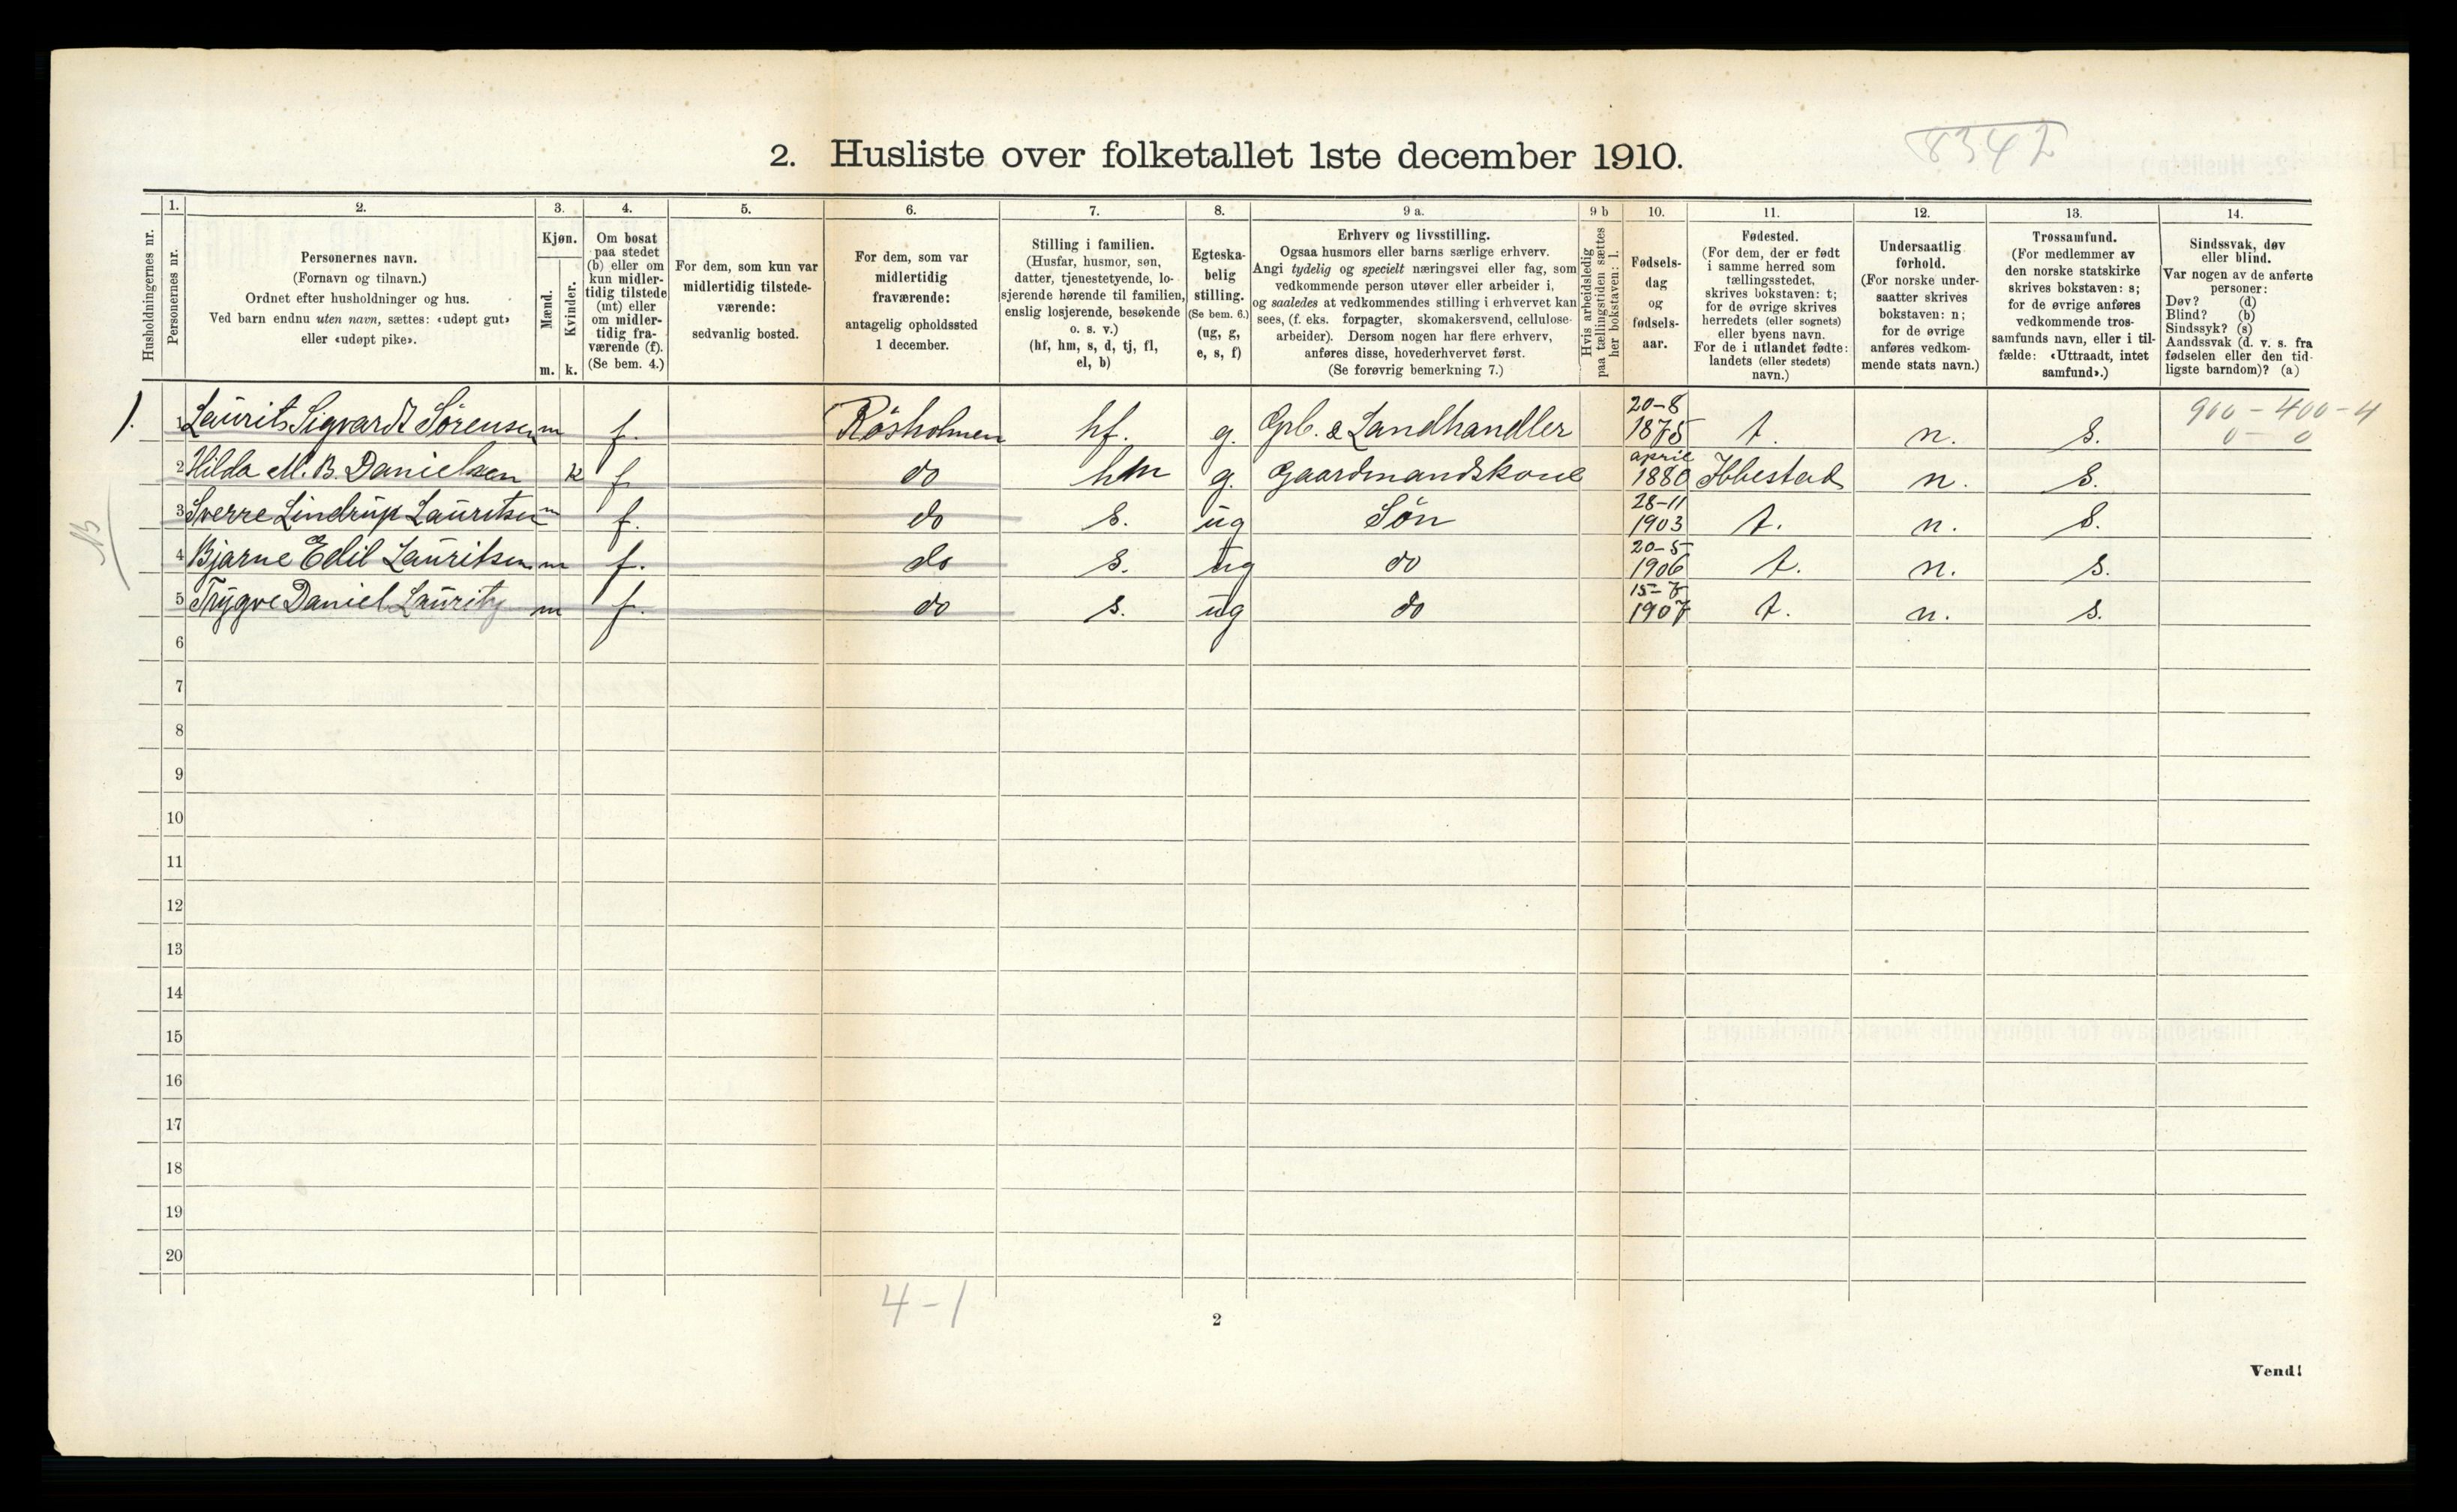 8342
2. Husliste over folketallet 1ste december 1910.
Husholdningernes nr.
1.
Personernes nr.
2.
Personernes navn.
(Fornavn og tilnavn.)
Ordnet efter husholdninger og hus.
Ved barn endnu uten navn, sættes: «udøpt gut»
eller «udøpt pike».
3.
Kjøn.
Mænd.
Kvinder.
m. k.
4.
Om bosat
paa stedet
(b) eller om
kun midler-
tidig tilstede
(mt) eller
om midler-
tidig fra-
værende (f).
(Se bem. 4.)
5.
For dem, som kun var
midlertidig tilstede-
værende:
sedvanlig bosted.
6.
For dem, som var
midlertidig
fraværende:
antagelig opholdssted
1 december.
7.
Stilling i familien.
(Husfar, husmor, søn,
datter, tjenestetyende, lo-
sjerende hørende til familien,
enslig losjerende, besøkende
o. s. v.)
(hf, hm, s, d, tj, fl,
el, b)
8.
Egteska-
belig
stilling.
(Se bem. 6.)
(ug, g,
e, s, f)
9 a.
Erhverv og livsstilling.
Ogsaa husmors eller barns særlige erhverv.
Angi tydelig og specielt næringsvei eller fag, som
vedkommende person utøver eller arbeider i,
og saaledes at vedkommendes stilling i erhvervet kan
sees, (f. eks. forpagter, skomakersvend, cellulose-
arbeider). Dersom nogen har flere erhverv,
anføres disse, hovederhvervet først.
(Se forøvrig bemerkning 7.)
9 b
Hvis arbeidsledig
paa tællingstiden sættes
her bokstaven: l.
10.
Fødsels-
dag
og
fødsels-
aar.
11.
Fødested.
(For dem, der er født
i samme herred som
tællingsstedet,
skrives bokstaven: t;
for de øvrige skrives
herredets (eller sognets)
eller byens navn.
For de i utlandet fødte:
landets (eller stedets)
navn.)
12.
Undersaatlig
forhold.
(For norske under-
saatter skrives
bokstaven: n;
for de øvrige
anføres vedkom-
mende stats navn.)
13.
Trossamfund.
(For medlemmer av
den norske statskirke
skrives bokstaven: s;
for de øvrige anføres
vedkommende tros-
samfunds navn, eller i til-
fælde: «Uttraadt, intet
samfund».)
14.
Sindssvak, døv
eller blind.
Var nogen av de anførte
personer:
Døv? (d)
Blind? (b)
Sindssyk? (s)
Aandssvak (d. v. s. fra
fødselen eller den tid-
ligste barndom)? (a)
1. 1 Laurits Sigvardt Sörensen m f. Räsholmen hf. g. Gpb. & Landhandler 20-8 1875 t. n. s. 900-400-4
0 - 0
2 Hilda M. B. Danielsen k f do hm g. Gaardmandskone april 1880 Ibbestad n. s.
3 Sverre Lindrup Lauritsen m f. do s. ug Sön 28-11 1903 t. n. s.
4 Bjarne Edil Lauritsen m f. do s. ug do 20-5 1906 t. n. s.
5 Trygve Daniel Lauritz m f. do s. ug do 15-7 1907 t. n. s.
6
7
8
9
10
11
12
13
14
15
16
17
18
19
20
4-1
2
Vend!